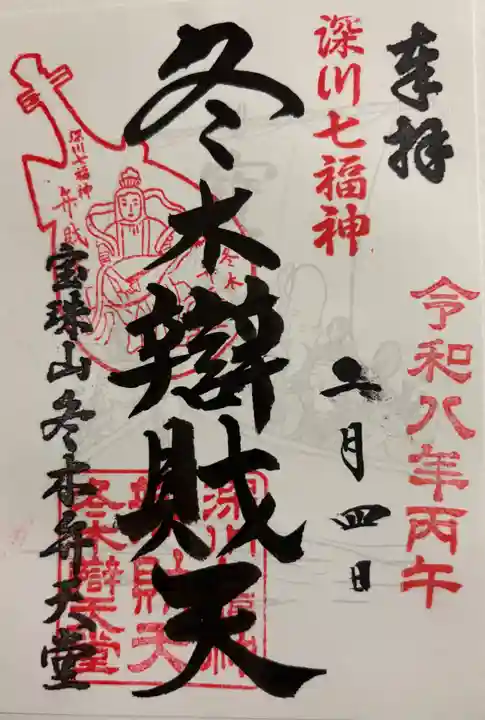 奉拝
令和八年丙午
深川七福神
二月四日
冬木辯財天
深川七福神
弁財天
冬木
宝珠山冬木弁天堂
深川七福神
辯財天
冬木辯天堂